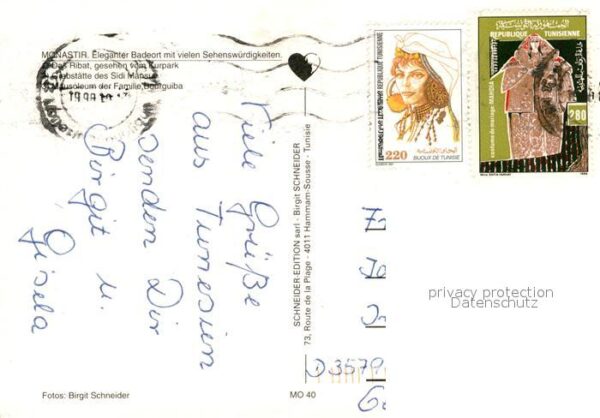 MONASTIR. Eleganter Badeort mit vielen Sehenswürdigkeiten.
Ribat, gesehen vom Kurpark
Grabstätte des Sidi
Mausoleum der Familie Bourguiba
Viele Grüße
aus Tunesien
senden Dir
Birgit u.
Gisela
SCHNEIDER EDITION sarl - Birgit SCHNEIDER
73, Route de la Plage - 4011 Hammam-Sousse - Tunisie
Fotos: Birgit Schneider
MO 40
REPUBLIQUE TUNISIENNE
220
BIJOUX DE TUNISIE
REPUBLIQUE TUNISIENNE
costume de mariage MAHDIA
280
D-3579
privacy protection
Datenschutz